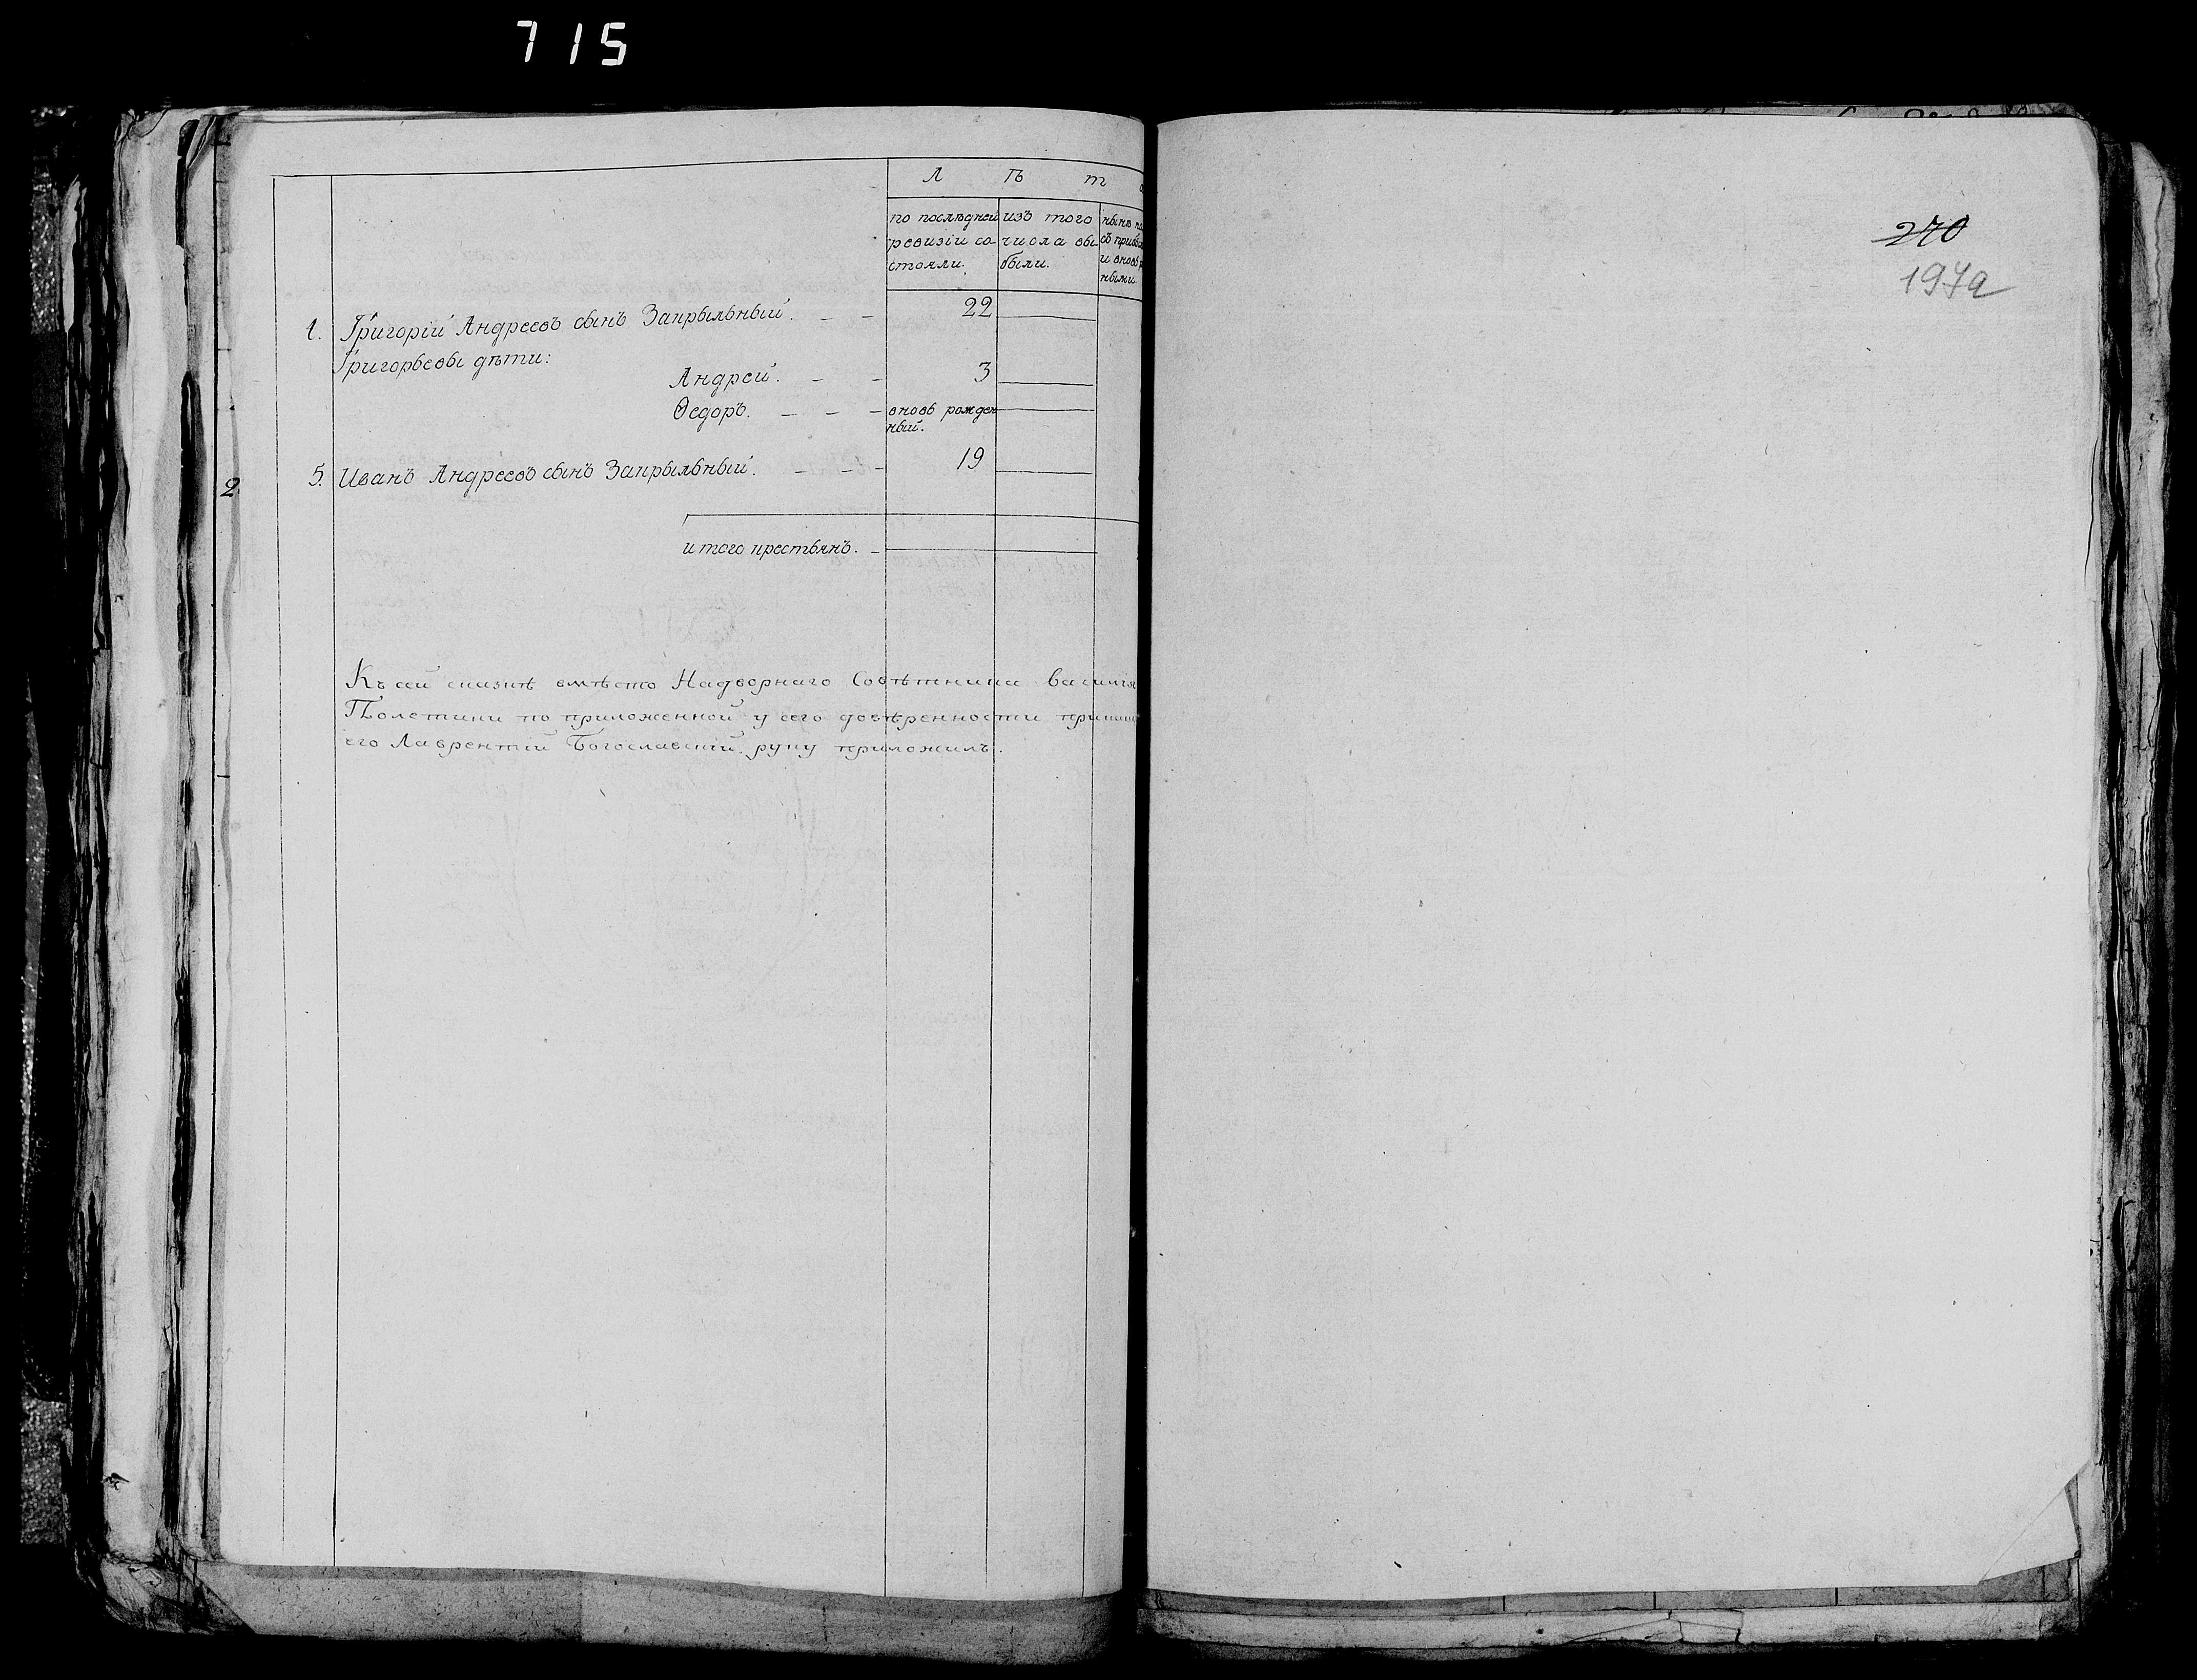 715
Л Ѣ т
по последней
ревизіи со-
стояли.
изъ того
числа вы-
были.
ныне на
съ прибы
и вновь р
ными.
1. Григорій Андреевъ сынъ Закрыльный. - - 22
Григорьевы дѣти:
Андрей. - - 3
Ѳедоръ. - - - вновь рожден
ный.
2
5. Иванъ Андреевъ сынъ Закрыльный. - - - 19
итого крестьянъ. -
Къ сей сказкѣ вмѣсто Надворнаго Совѣтника Василія
Полетики по приложенной у сего довѣренности
его Лаврентій Богославскій руку приложилъ.
270
197а